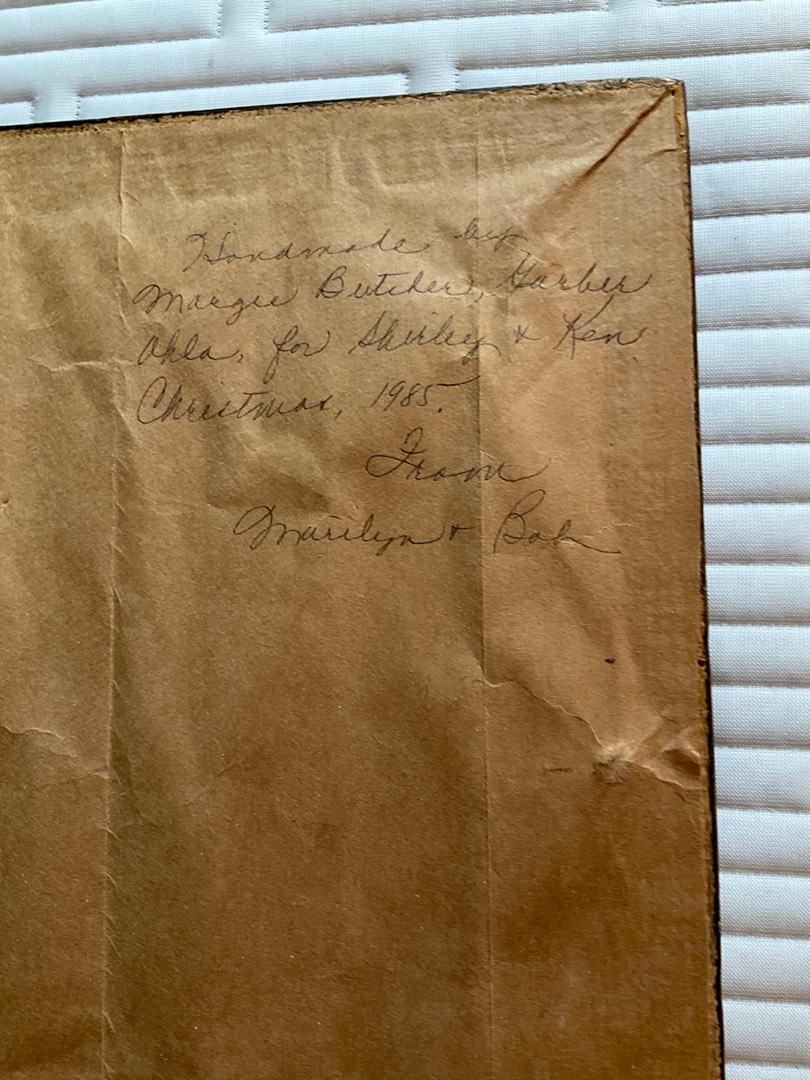 Handmade by
Margie Butcher, Garber
Okla, for Shirley & Ken
Christmas, 1985.
From
Marilyn & Bob